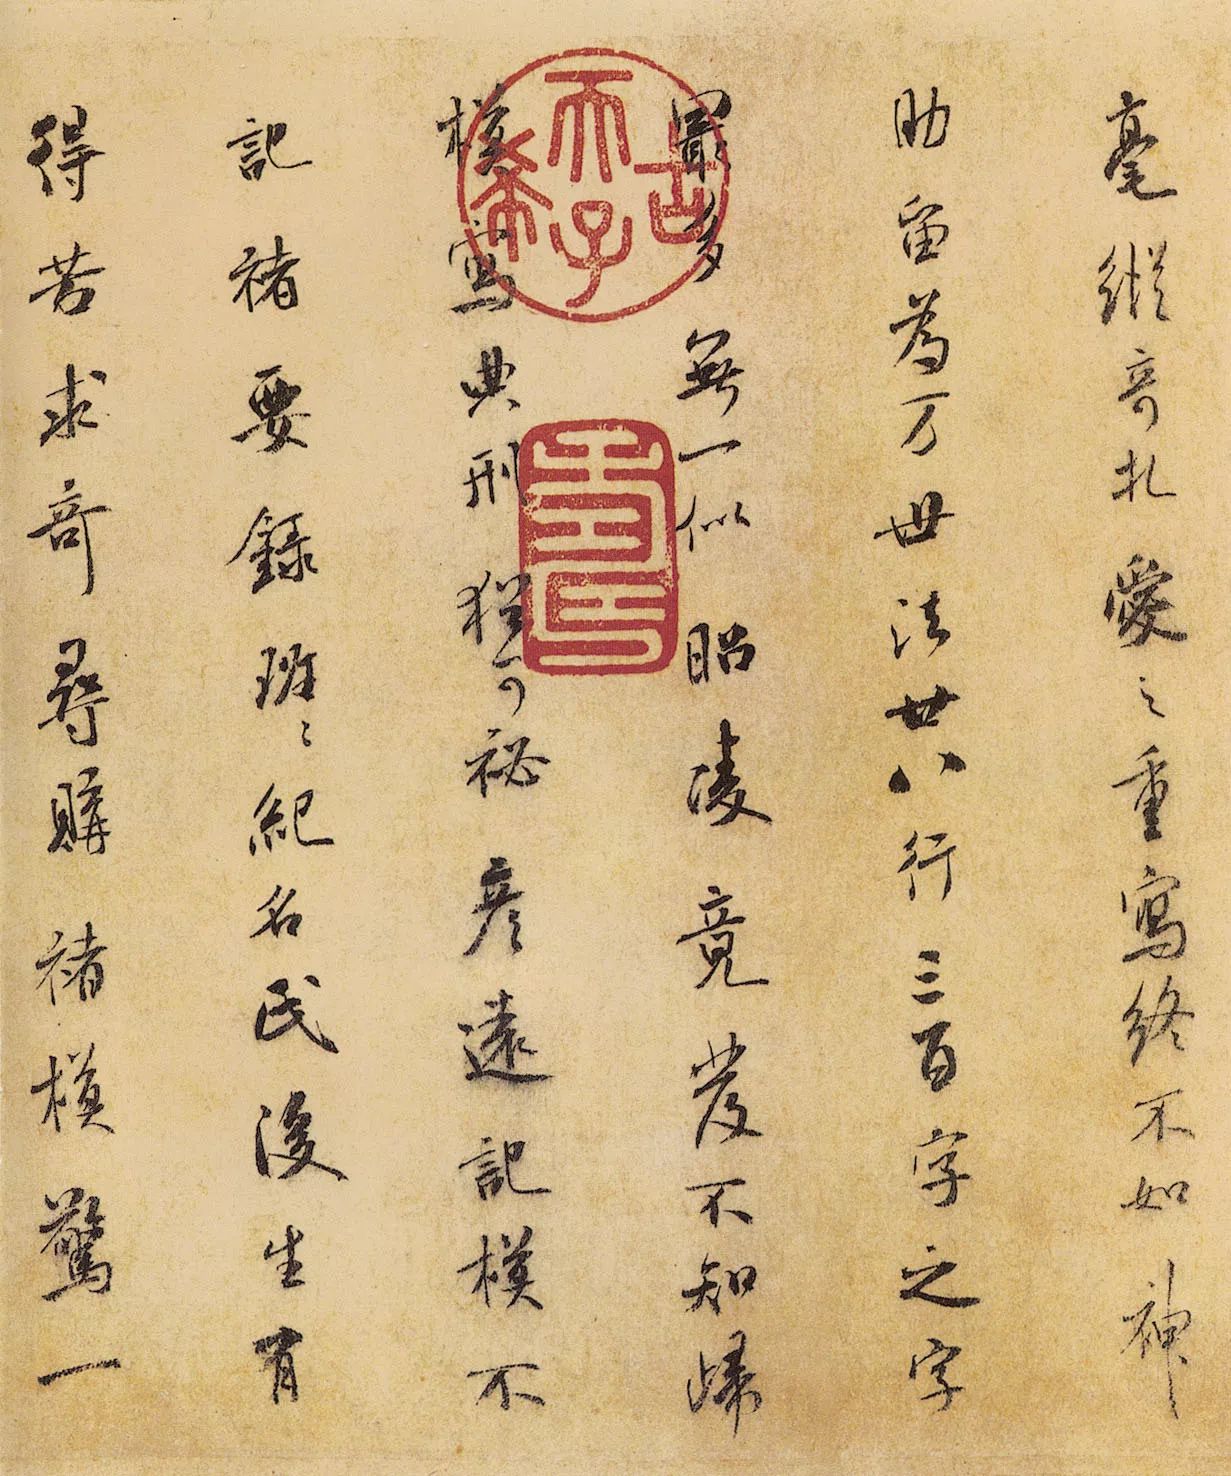 毫縱奇札愛之重寫終不如神
助留為万世法廿八行三百字之字
冣多無一似昭陵竟發不知歸
模寫典刑猶可祕彥遠記模不
記褚要錄班〻紀名氏後生有
得苦求奇尋購褚模驚一
古希天子
壽